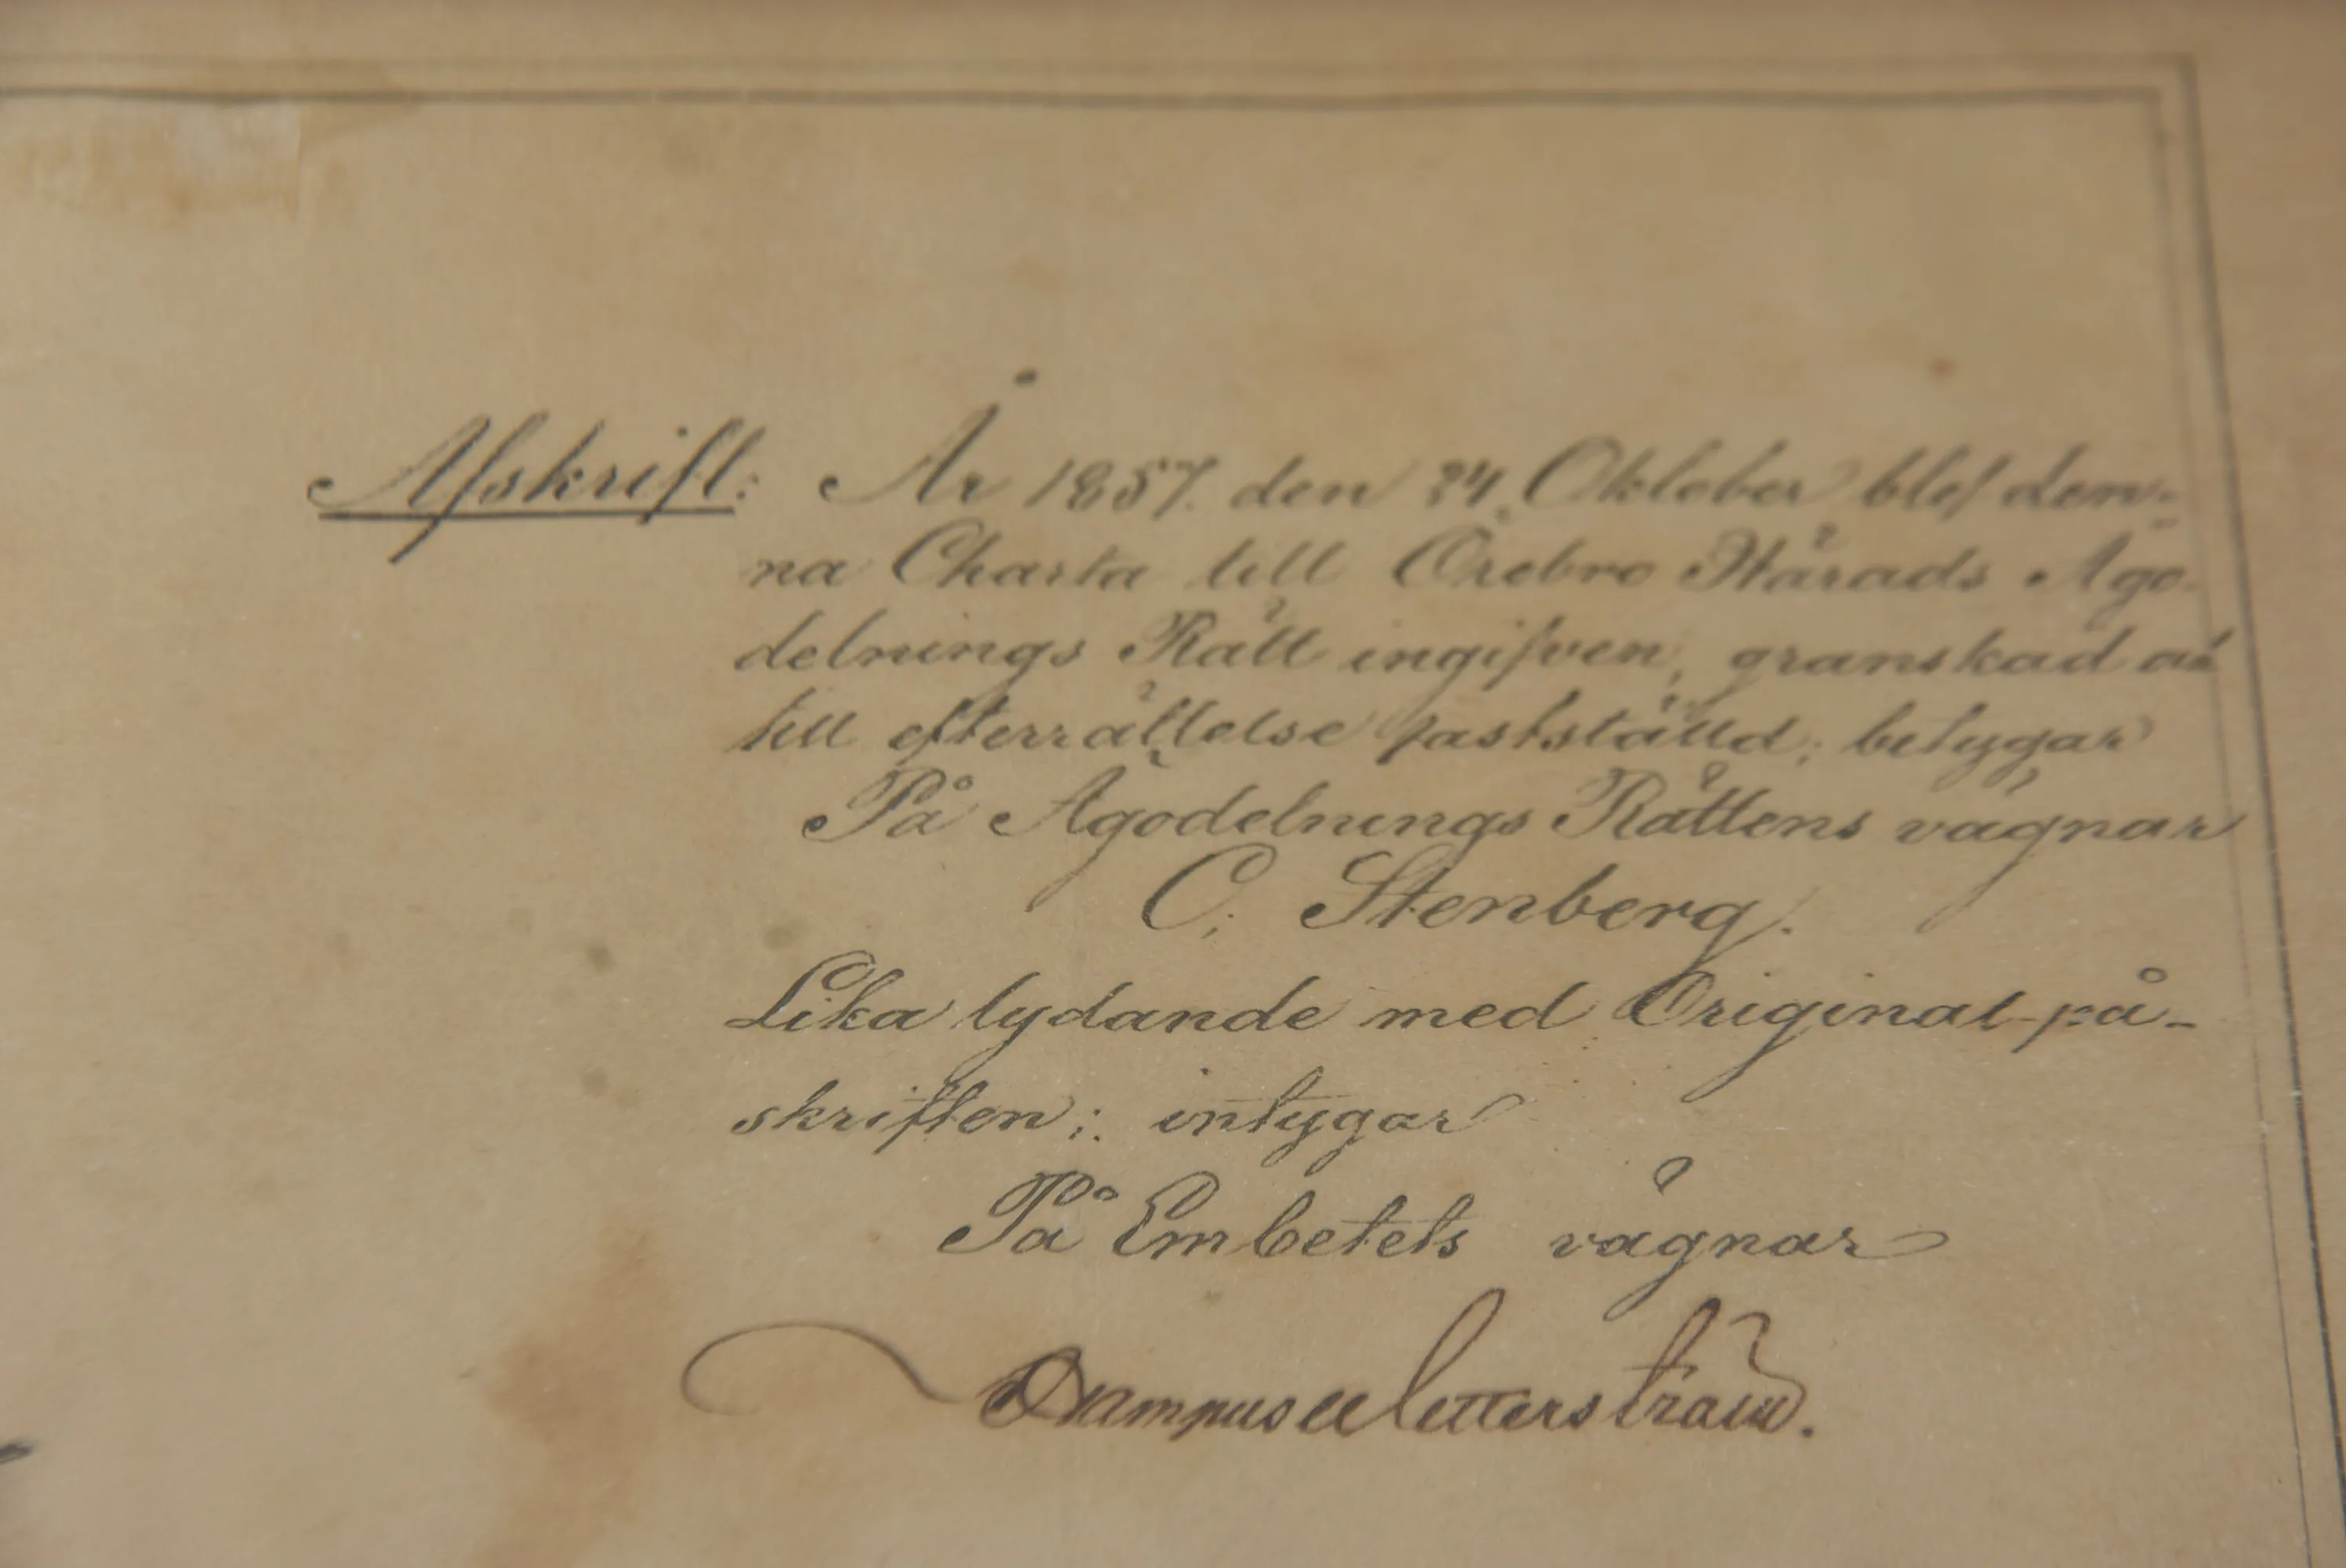 Afskrift: År 1857. den 24. Oktober blef den-
na Charta till Örebro Härads Ägo-
delnings Rätt ingifven, granskad
till efterrättelse fastställd; betygar
På Ägodelnings Rättens vägnar
C. Stenberg.
Lika lydande med Original-på-
skriften; intygar
På Embetets vägnar